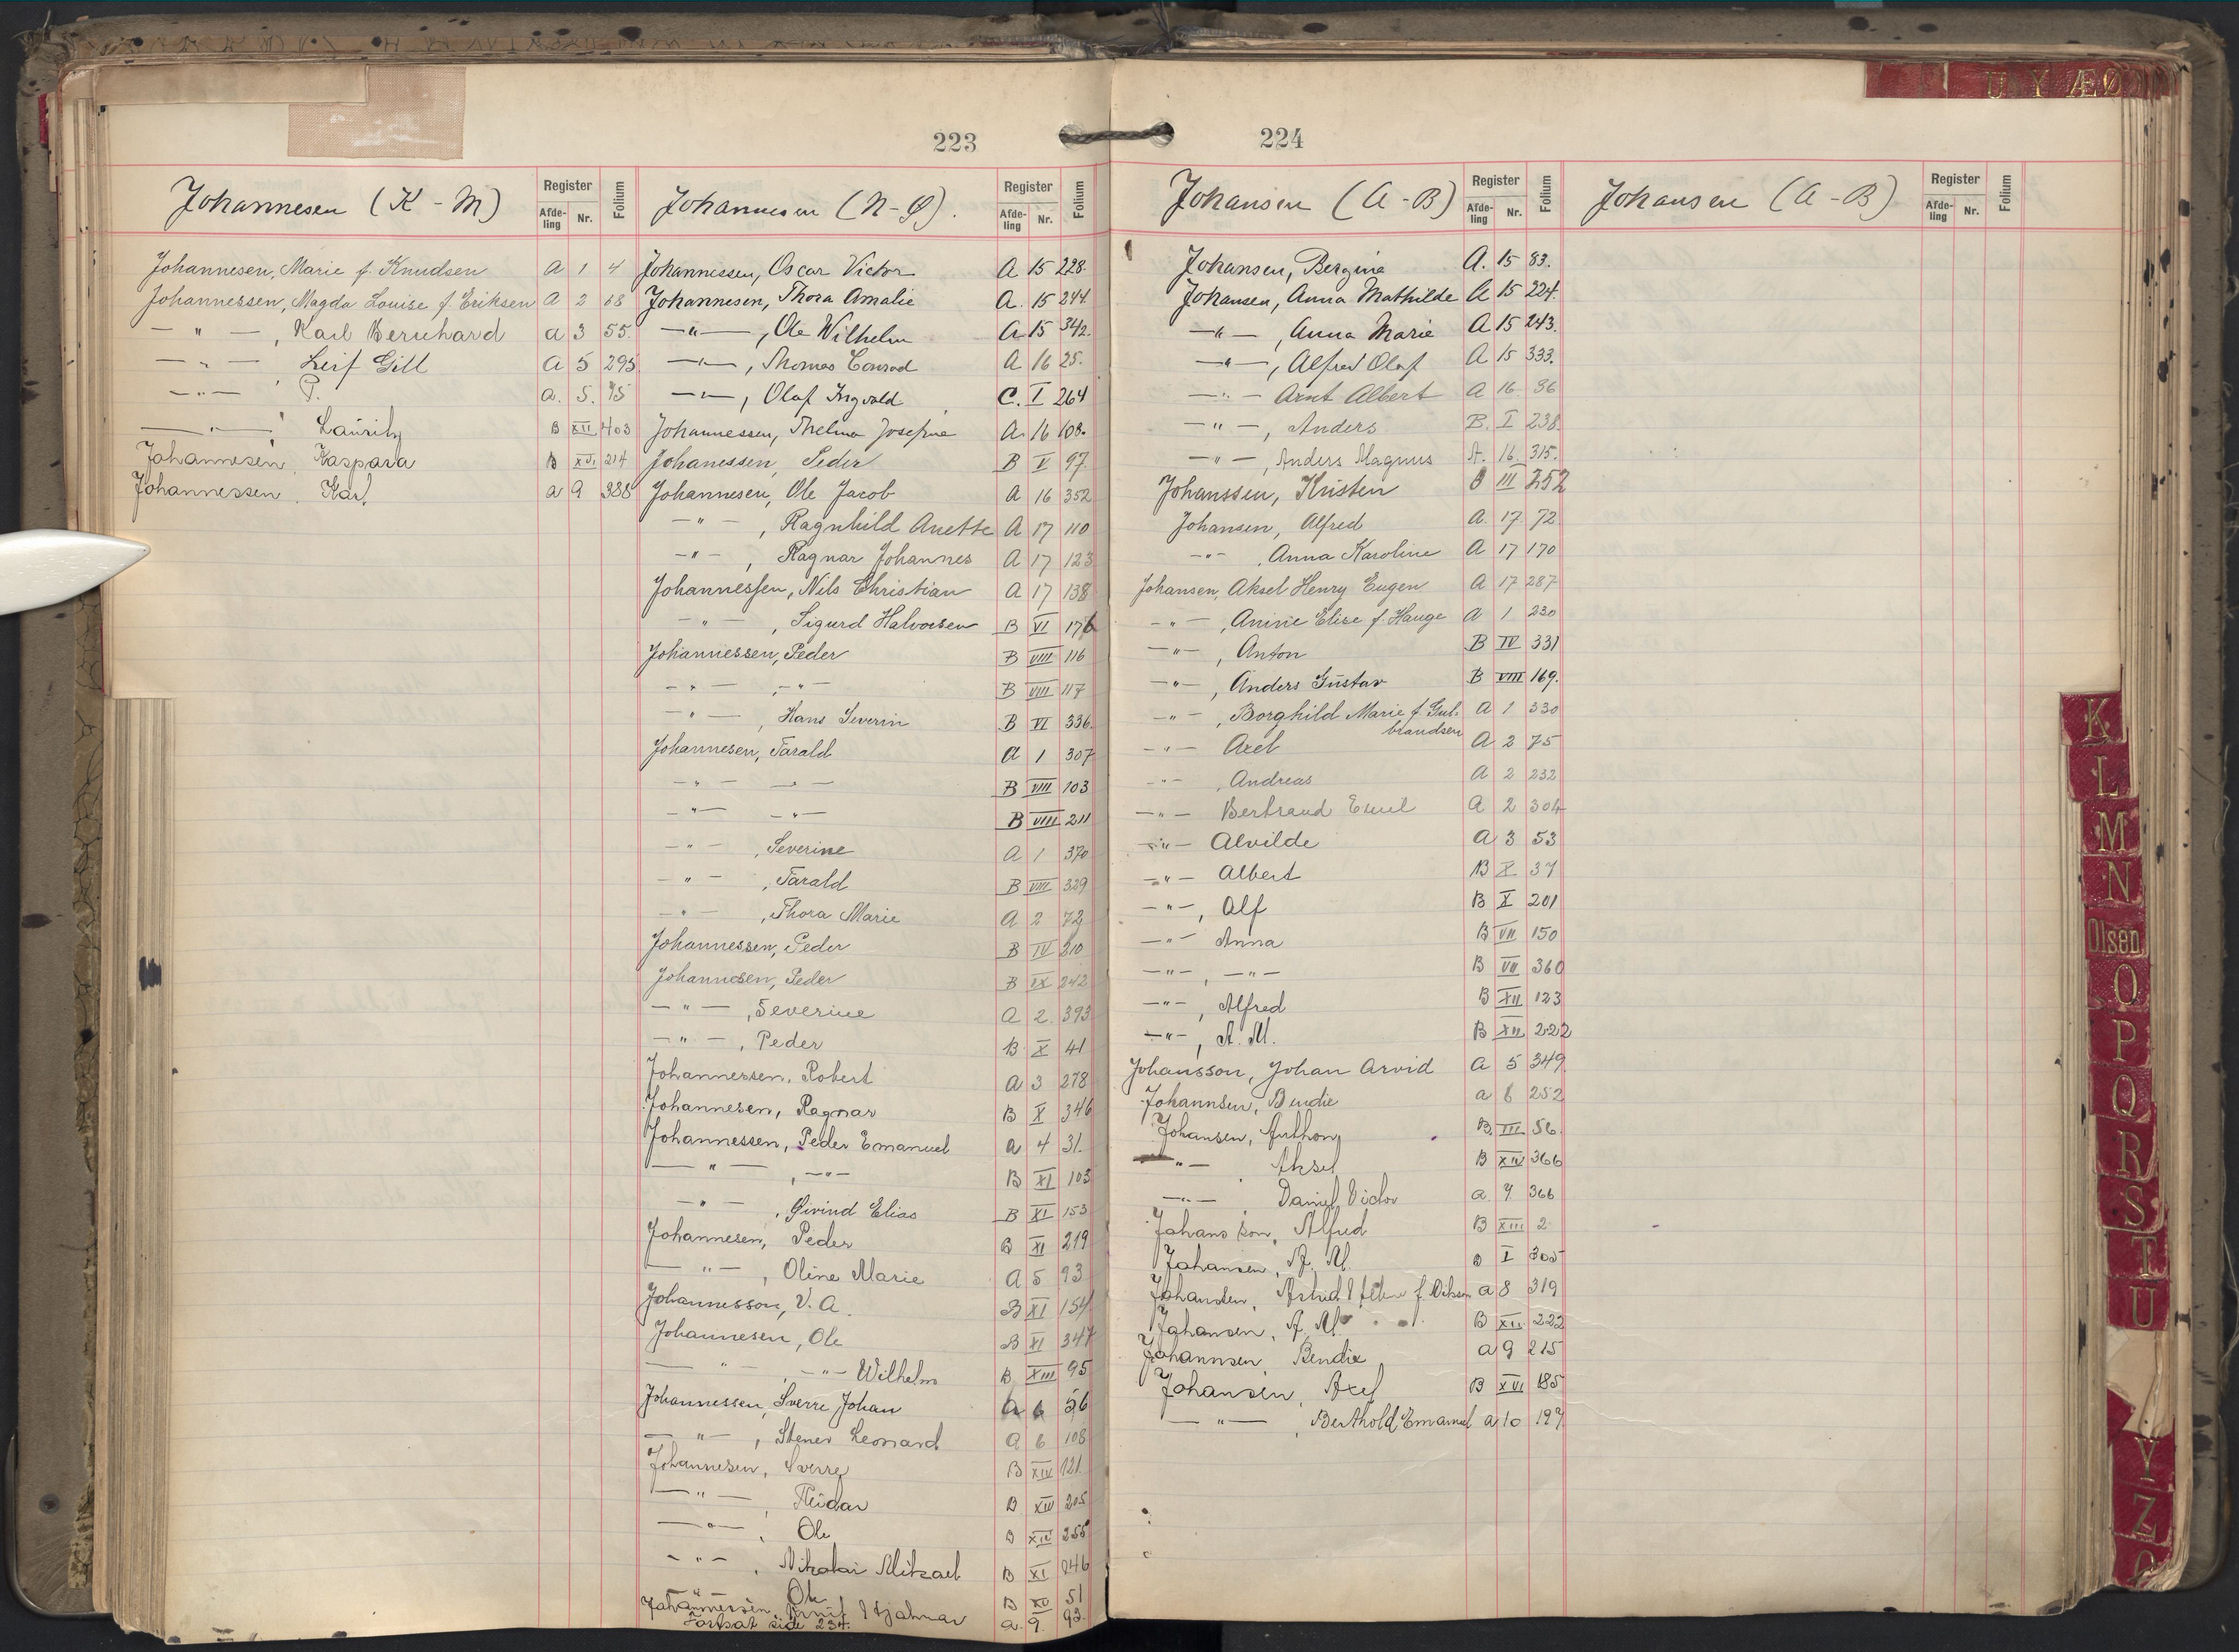 223
Johannesen (K - M)
Register
Afde-ling
Nr.
Folium
Johannesen, Marie f. Knudsen A 1 4
Johannessen, Magda Louise f. Eriksen A 2 68
— " — , Karl Bernhard a 3 55.
— " — Leif Gill A 5 295
— " — , P. a. 5. 95
— " — , Lauritz B XII 403
Johannesen, Kaspara B XVI 214
Johannessen, Karl a 9 388
Johannesen (N - Ø).
Register
Afde-ling
Nr.
Folium
Johannessen, Oscar Victor A 15 228.
Johannesen, Thora Amalie A. 15 244.
— " — , Ole Wilhelm A 15 342.
— " — , Thomas Conrad A 16 25.
— " — , Olaf Ingvald C. I 264
Johannessen, Thelma Josefine A. 16 108.
Johanessen, Peder B V 97.
Johannesen, Ole Jacob A 16 352
— " — , Ragnhild Anette A 17 110
— " — , Ragnar Johannes A 17 123
Johannessen, Nils Christian A 17 138
— " — , Sigurd Halvorsen B VI 176
Johannessen, Peder B VIII 116
— " — , — " — B VIII 117
— " — , Hans Severin B VI 336.
Johannesen, Tarald A 1 307
— " — — " — B VIII 103
— " — — " — B VIII 211
— " — , Severine A 1 370
— " — , Tarald B VIII 329
— " — , Thora Marie A 2 72
Johannessen, Peder B IV 210
Johannesen, Peder B IX 242
— " — , Severine A 2. 393
— " — , Peder B X 41
Johannessen, Robert A 3 278
Johannesen, Ragnar B X 346
Johannessen, Peder Emanuel A 4 31.
— " — , — " — B XI 103
— " — , Øivind Elias B XI 153
Johannesen, Peder B XI 219
— " — , Oline Marie A 5 93
Johannesson, V. A. B XI 154
Johannesen, Ole B XI 347
— " — , — " — Wilhelm B XIII 95
Johannessen, Sverre Johan A 6 56
— " — , Stener Leonard A 6 108
Johannesen, Sverre B XIV 121.
— " — , Reidar B XIV 205
— " — , Ole B XIV 255
— " — , Nikolai Mikael B XI 246
— " — Ole B XV 51
Johannessen, Hjalmar a. 9. 93.
Fortsat side 234.
224
Johansen (A - B)
Register
Afde-ling
Nr.
Folium
Johansen, Bergine A. 15 83.
Johansen, Anna Mathilde A 15 224.
— " — , Anna Marie A 15 243.
— " — , Alfred Olaf A 15 333.
— " — Arnt Albert A 16 36
— " — , Anders B. I 238.
— " — , Anders Magnus A. 16. 315.
Johanssen, Kristen B III 252
Johansen, Alfred A. 17. 72
— " — , Anna Karoline A 17 170
Johansen, Aksel Henry Eugen A 17 287
— " — , Aninie Elise f. Hauge A 1 230
— " — , Anton B IV 331
— " — , Anders Gustav B VIII 169.
— " — , Borghild Marie f. Gul-brandsen A 1 330
— " — Axel A 2 75
— " — , Andreas A 2 232
— " — Bertrand Emil A 2 304
— " — Alvilde A 3 53
— " — Albert B X 37
— " — , Alf B X 201
— " — Anna B VII 150
— " — , — " — B VII 360
— " — , Alfred B XII 123
— " — , A. M. B XII 222
Johansson, Johan Arvid A 5 349
Johannsen, Bendix a 6 252
Johansen, Anthon B. III 56.
— " — Aksel B XIV 366
— " — , Daniel Victor a 7 366
Johansson, Alfred B XIII 2
Johansen, A. M. B I 305
Johansen, Astrid f. a 8 319
Johansen, A. M. B XII 222
Johannsen, Bendix a 9 215
Johansen, Axel B XVI 185
— " — , Berthold Emanuel a 10 197
Johansen (A - B)
Register
Afde-ling
Nr.
Folium
U Y ÆØ
K
L
M
N
Olsen
O
P
Q
R
S
T
U
Y
Z